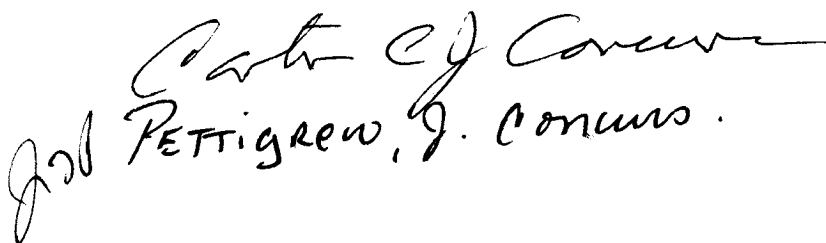 Carter CJ Concurs
PETTIGREW, J. Concurs.